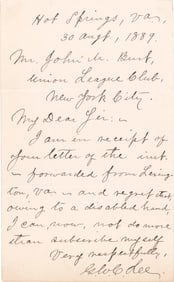 Hot Springs, Va,
30 Augt, 1889.
Mr. John M. Bunt,
Union League Club,
New York City.
My Dear Sir:
I am in receipt
of your letter of the inst.
forwarded from Lexing-
ton, Va and regret that,
owing to a disabled hand,
I can now, not do more
than subscribe myself
Very respectfully,
G W C Lee.